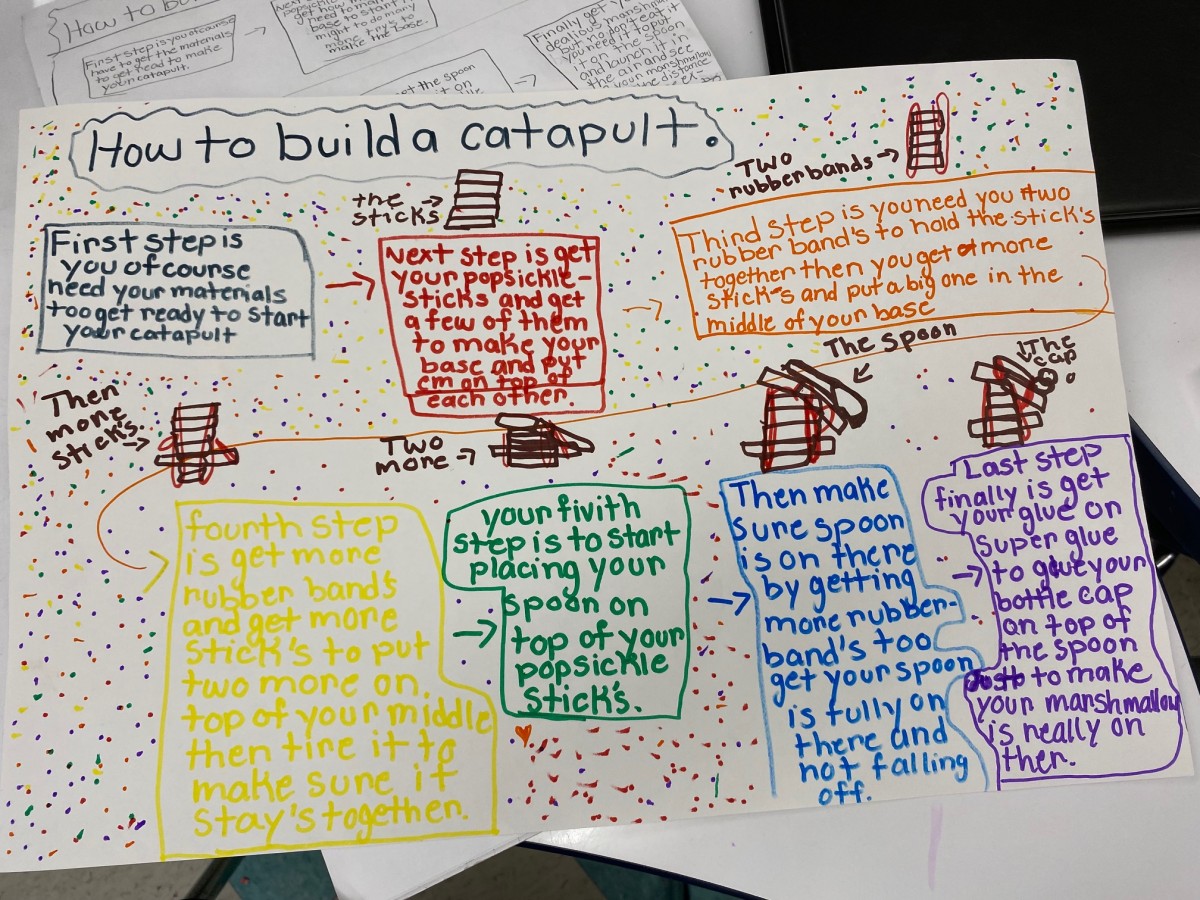 How to bu
First step is you of course
have to get the materials
to get read to make
your catapult.
base to start
might to do many
more try's to
make the base.
get the spoon
it on
Finally get
but no don't eat it
you need it to put
it on the spoon
and launch it in
the air and see
How to build a catapult.
First step is
you of course
need your materials
too get ready to start
your catapult
the
sticks
Next step is get
your popsickle-
sticks and get
a few of them
to make your
base and put
em on top of
each other.
Two
rubber bands
Third step is you need you two
rubber band's to hold the stick's
together then you get more
stick's and put a big one in the
middle of your base
Then
more
sticks.
fourth step
is get more
rubber band's
and get more
stick's to put
two more on
top of your middle
then tire it to
make sure it
stay's together.
Two
more
your fivith
step is to start
placing your
spoon on
top of your
popsickle
stick's.
The spoon
Then make
sure spoon
is on there
by getting
more rubber-
band's too
get your spoon
is fully on
there and
not falling
off.
The
cap
Last step
finally is get
your glue on
super glue
to glue your
bottle cap
on top of
the spoon
to make
your marshmallow
is really on
ther.